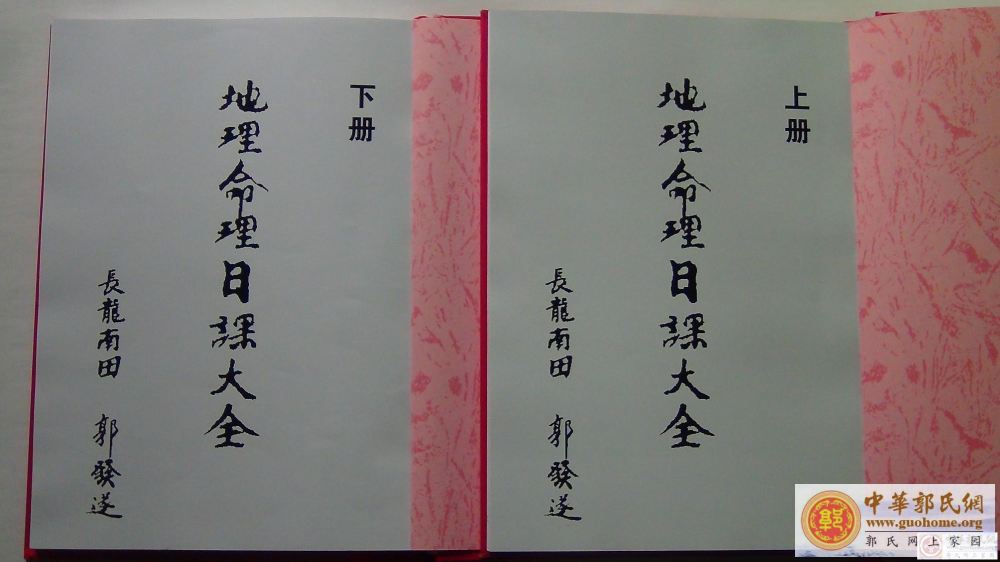 上册
地理命理日課大全
長龍南田 郭發遂
下册
地理命理日課大全
長龍南田 郭發遂
中華郭氏網
www.guohome.org
郭氏网上家园